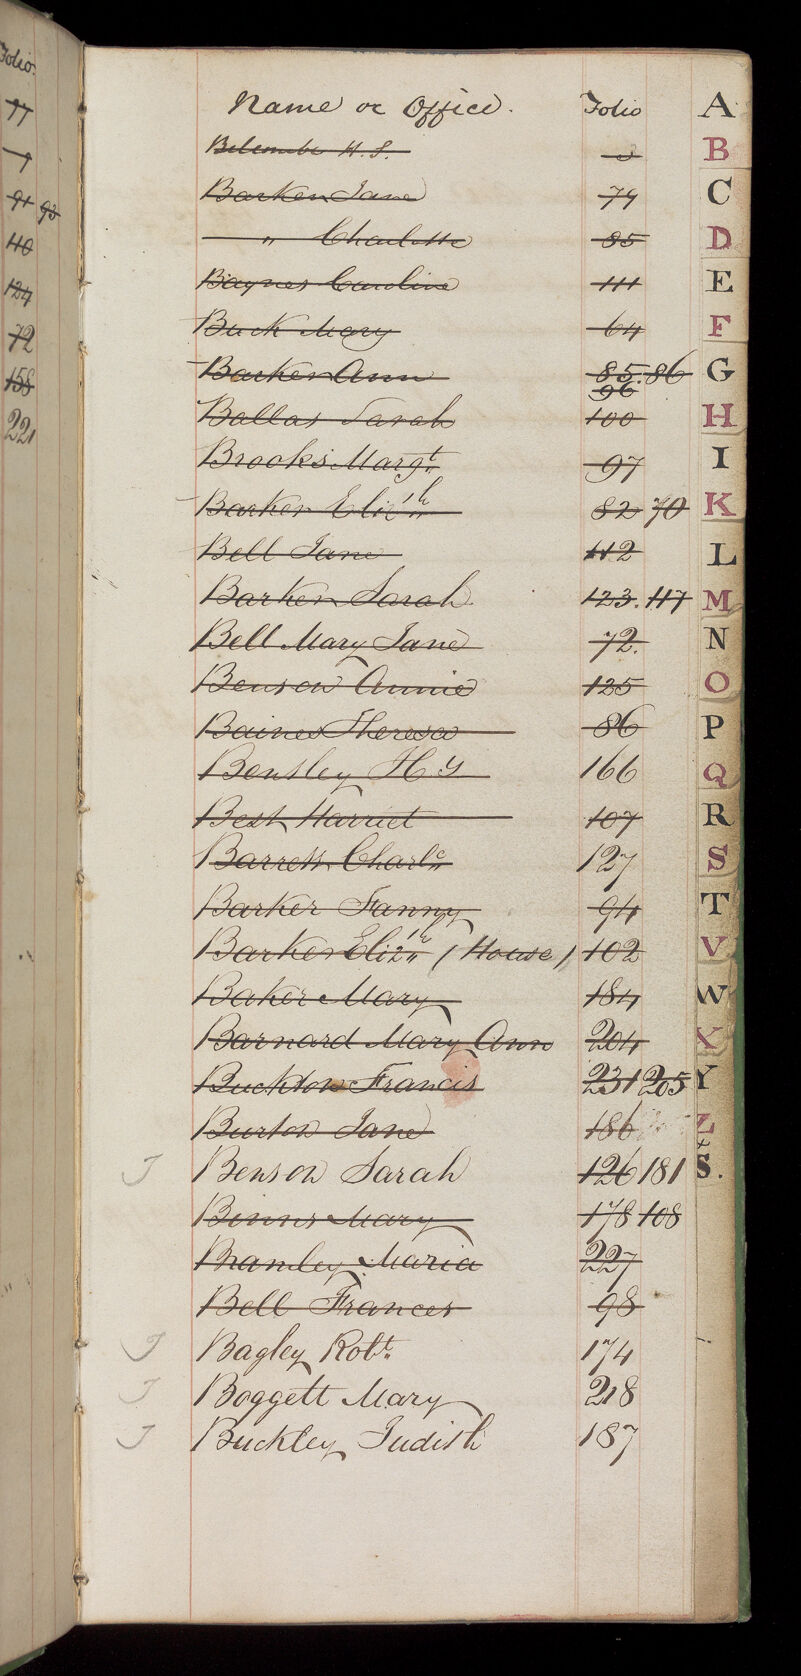 Folio
77
7
91 93
40
124
72
158
221
Name or Office. Folio
Belcombe H. S. 3
Barker Jane 79
" Charlotte 85
Baynes Caroline 111
Buck Mary 64
Barker Ann 85. 86
96
Ballas Sarah 100
Brooks Margt 97
Barker Elizth 82 70
Bell Jane 112
Barker Sarah 123. 117
Bell Mary Jane 72.
Benson Annie 125
Baines Theresa 86
Bensley Hy 166
Best Harriet 107
Barrett Charlte 127
Barker Fanny 94
Barker Elizth (House) 102
Baker Mary 184
Barnard Mary Ann 204
Buckton Francis 231 205
Burton Jane 186
J Benson Sarah 126 181
Binns Mary 178 108
Bramley Maria 227
Bell Frances 98
J Bagley Robt 174
J Boggett Mary 218
J Buckley Judith 187
A
B
C
D
E
F
G
H
I
K
L
M
N
O
P
Q
R
S
T
V
W
X
Y
Z
&
S.